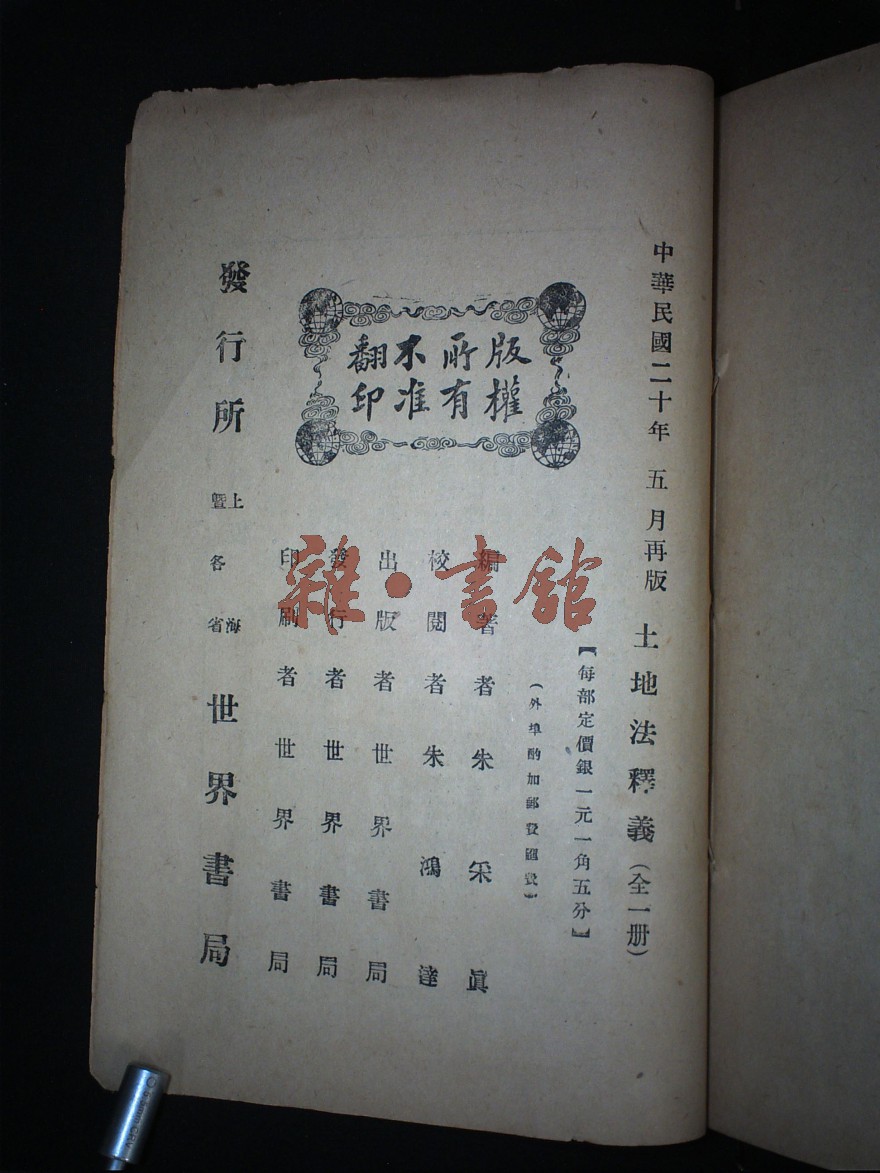 中華民國二十年 五月再版 土地法釋義(全一册)
【每部定價銀一元一角五分】
(外埠酌加郵費匯費)
版權
所有
不准
翻印
編著者朱采眞
校閱者朱鴻達
出版者世界書局
發行者世界書局
印刷者世界書局
發行所 上海 暨各省 世界書局
雜·書館